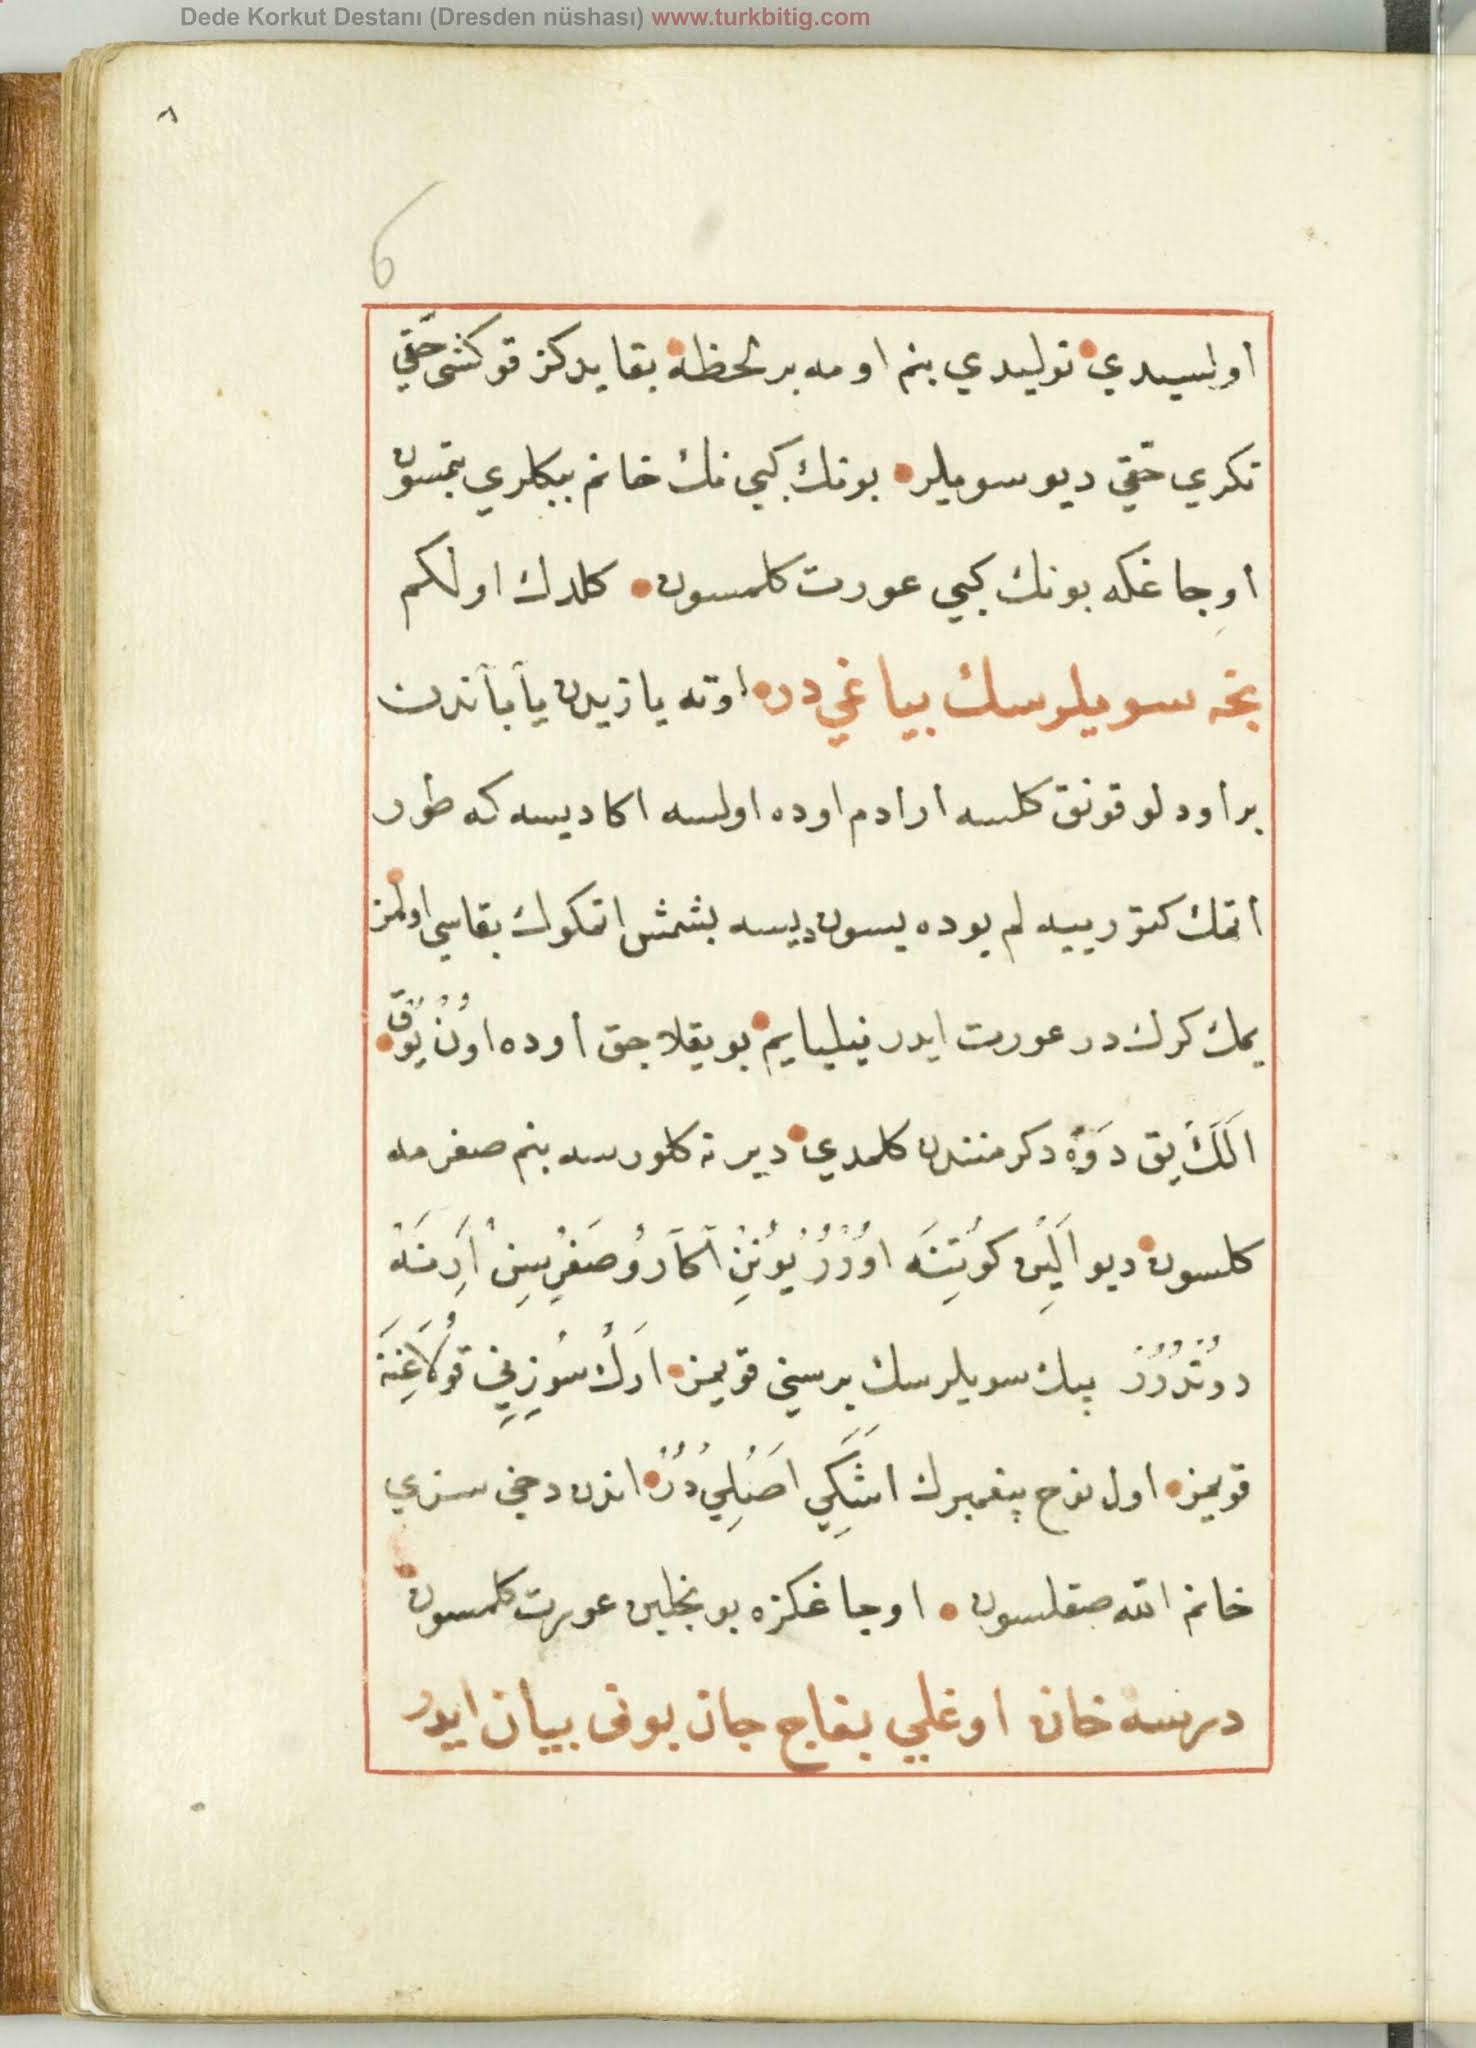 Dede Korkut Destanı (Dresden nüshası) www.turkbitig.com
٨
6
اولسیدي تولیدي بنم اومه بر لحظه بقایدکز قوکشی حقّي
تکري حقّي دیو سویلر بونك کبي نك خانم ببکلري بتمسون
اوجاغکه بونك کبي عورت کلمسون کلدك اولکم
نجه سویلرسك بیاغي دره اوته یازیدن یاباندن
بر اودلو قونق کلسه ار ادم اوده اولسه اکا دیسه که طور
اتمك کتور ییه لم بوده یسون دیسه بشمش اتمکوك بقاسي اولمز
یمك کرك در عورت ایدر نیلیایم بو یقلاجق اوده اُونْ یُوقْ
اَلَك یق دَوَه دکرمنندن کلمدي دیر نه کلورسه بنم صغرمه
کلسون دیو اَلِین کُوتِنَه اُورُرْ یُوزِنْ اَکارُو صَغْرِسِنْ اَرِنَه
دوندُرُرْ بیك سویلرسك برسني قویمز اَرك سُوزِینِي قُولاَغِنَه
قویمز اول نوح پیغمبرك اَشَکِي اَصَلِي دُرْ اندن دخي سزي
خانم الله صقلسون اوجاغکزه بونجلین عورت کلمسون
درسه خان اوغلي بغاج جان بونی بیان ایدر